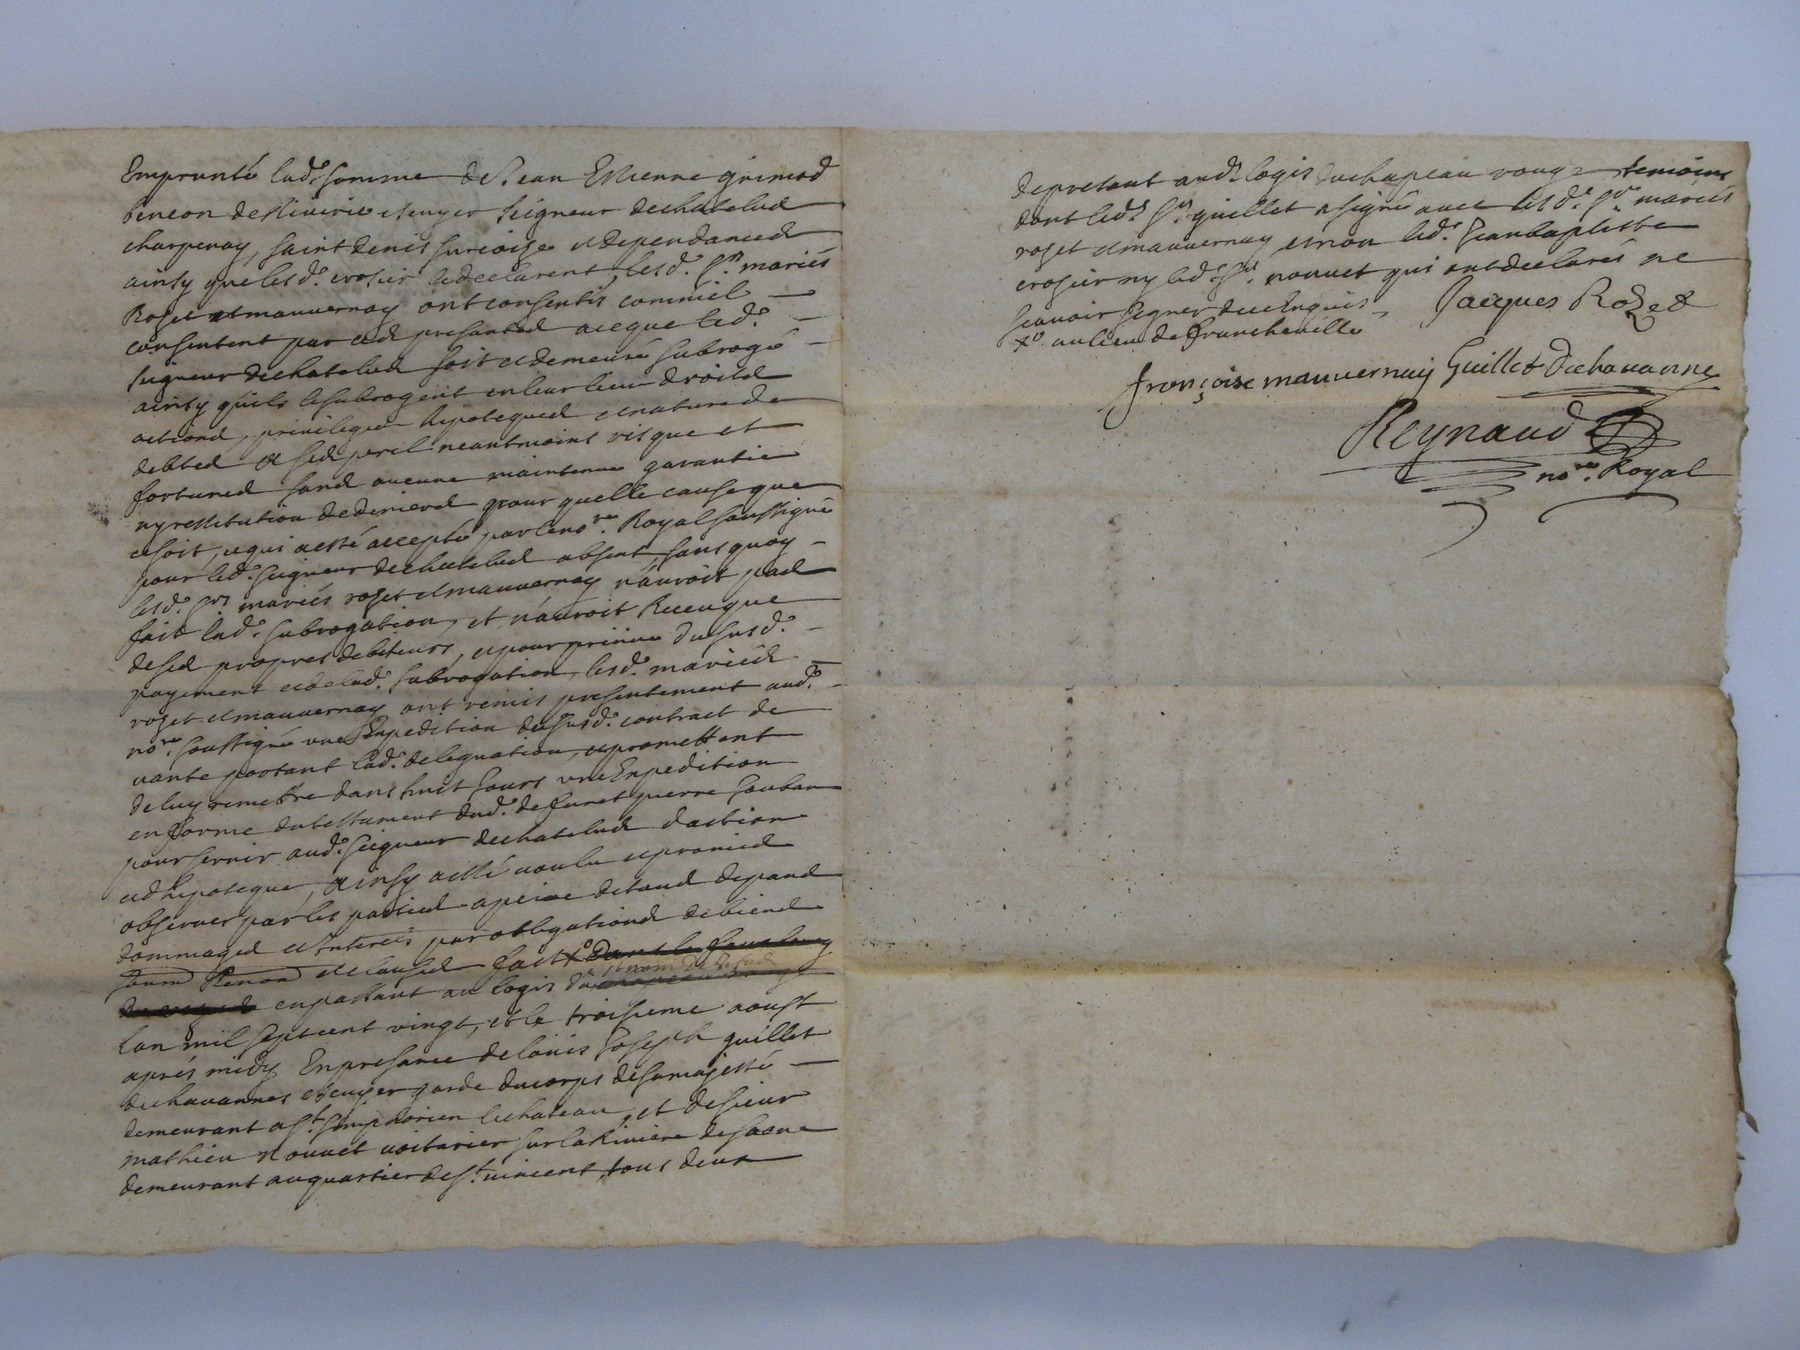 Emprunté lad.e somme de Jean Estienne grimod
beneon de Riuerie escuyer seigneur de chatelud
charpenay, saint denis surcoise et dependanced
ainsy que lesd.s crosier le declarent, lesd.s s.rs mariés
Rozet et mauuernay ont consentis comme il
consentent par ced presented aceque led.t
seigneur de chatelud soit et demeure subrogé
ainsy quils le subrogent en leur lieu droitd
actiond, priuilegue hypotequed et nature de
debted a sed peril neantmoins risque et
fortuned sand aucune maintenue garantie
ny restitution de denierd pour quelle cause que
cesoit, cequi a esté accepté par le no.re Royal soussigné
pour led.t seigneur de chatelud absent, sans quoy
lesd.s s.rs mariés rozet et mauuernay n'auroit pad
fait lad.e subrogation, et n'auroit Receu que
de sed propres debiteurs, et pour preuue du susd.t
payement et de lad.e subrogation, lesd.s mariéd
rozet et mauuernay ont remis presentement aud.t
no.re soussigné vne Expedition du susd.t contract de
vante portant lad.e deleguation, et promettent
de luy remettre dans huit jours vne Expedition
en forme du testament dud.t defunt pierre
pour seruir aud.t seigneur de chatelud daction
et dhipoteque, ainsy a esté voulu et promid
obseruer par les partied a peine de toud depand
dommaged et Interets par obligationd de biend
soumd Renond et claused fait x.o dans le fauxbourg
en passant au logis du
lan mil sept cent vingt, et le troisieme aoust
aprés midy En presance de louis Joseph guillet
de chauannes escuyer garde du corps de sa majesté
demeurant a S.t simphorien le chateau, et de sieur
mathieu nouuet voiturier sur la Riuiere de saone
demeurant au quartier de S.t vincent, tous deux
de presant aud.t logis du chapeau rouge temoins
dont led.t s.r guillet a signé auec lesd.s s.rs mariés
rozet et mauuernay et non led.t Jean baptiste
crosier ny led.t s.r nouuet qui ont declarés ne
scauoir signer de ce Enquis
x.o au lieu de francheuille
Jacques Rozet
françoise mauuernay Guillet Dechauanne
Reynaud
no.re Royal